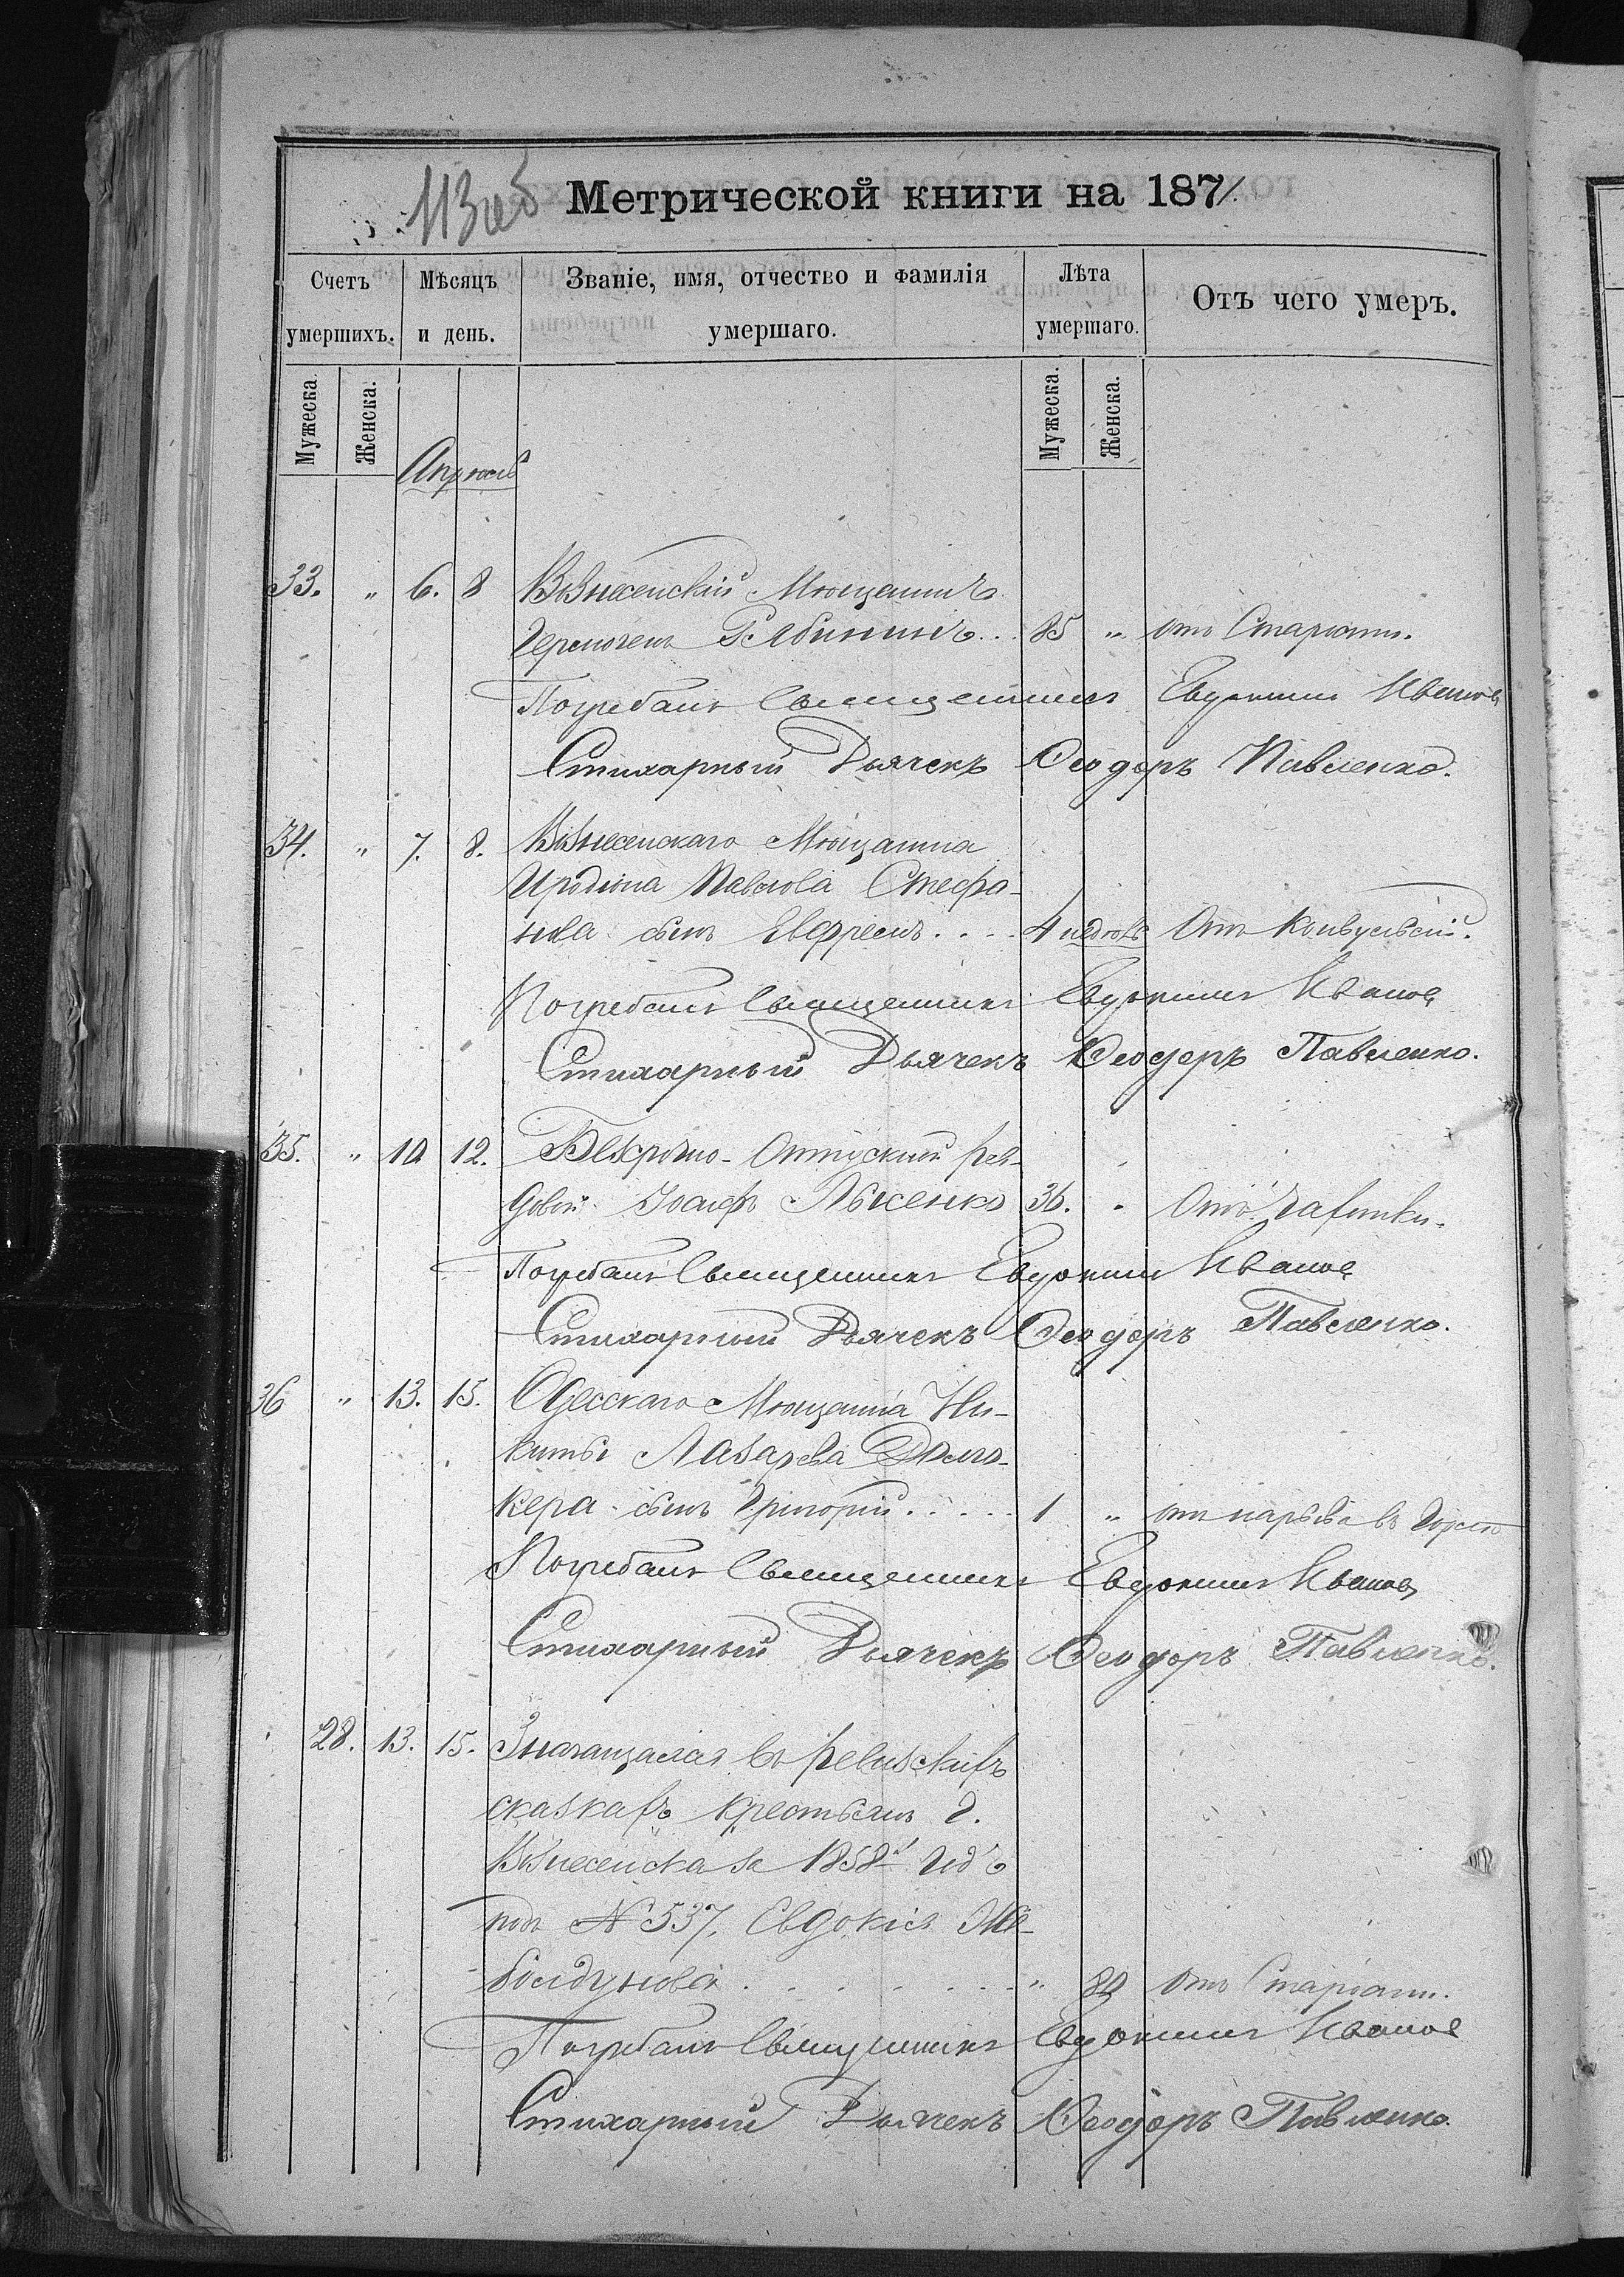 113 об
Метрической книги на 1871.
Счетъ умершихъ.
Мѣсяцъ и день.
Званіе, имя, отчество и фамилія умершаго.
Лѣта умершаго.
Отъ чего умеръ.
Мужеска.
Женска.
Мужеска.
Женска.
Апрѣль
33. " 6. 8 Вознесенскій Мѣщанинъ
Рябининъ... 85 " отъ Старости.
Погребалъ Священникъ Евдокимъ Иванов
Стихарный Дьячекъ Ѳеодоръ Павленко.
34. " 7. 8. Вознесенскаго Мѣщанина
Иродіона Павлова Стефа-
нова сынъ Евфремъ.... 4 недѣль Отъ конвульсій.
Погребалъ Священникъ Евдокимъ Иванов
Стихарный Дьячекъ Ѳеодоръ Павленко.
35. " 10 12. Безсрочно-Отпускной ря-
довой Іосифъ Лысенко 36. " Отъ чахотки.
Погребалъ Священникъ Евдокимъ Иванов
Стихарный Дьячекъ Ѳеодоръ Павленко.
36 " 13. 15. Одесскаго Мѣщанина Ни-
киты Лазарева
кера сынъ Григорій..... 1 " отъ нарыва въ горлѣ
Погребалъ Священникъ Евдокимъ Иванов
Стихарный Дьячекъ Ѳеодоръ Павленко.
28. 13. 15. Значащаяся въ ревизскихъ
сказкахъ крестьянъ г.
Вознесенска за 1858й годъ
подъ № 537. Евдокія Же-
болдунова....... " 89 отъ Старости.
Погребалъ Священникъ Евдокимъ Иванов
Стихарный Дьячекъ Ѳеодоръ Павленко.